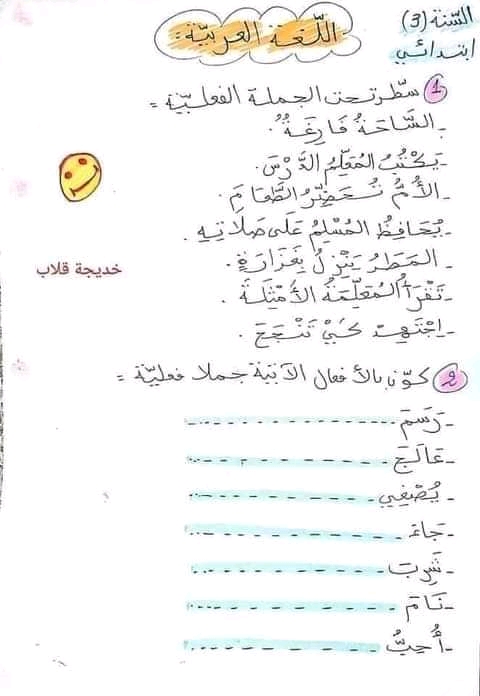 السّنة (3)
ابتدائي
اللّغة العربيّة :
1 سطّر تحت الجملة الفعليّة =
- السَّاحَةُ فَارِغَةٌ.
- يَكْتُبُ المُعَلِّمُ الدَّرْسَ.
- الأُمُّ تُحَضِّرُ الطَّعَامَ.
- يُحَافِظُ المُسْلِمُ عَلَى صَلَاتِهِ.
- المَطَرُ يَنْزِلُ بِغَزَارَةٍ.
خديجة قلاب
- تَقْرَأُ المُعَلِّمَةُ الأَمْثِلَةَ.
- اِجْتَهِدْ كَيْ تَنْجَحَ.
2 كوّن بالأفعال الآتية جملا فعليّة =
- رَسَمَ ..................
- عَالَجَ ..................
- يُصْغِي ..................
- جَاءَ ..................
- شَرِبَ ..................
- نَامَ ..................
- أُحِبُّ ..................